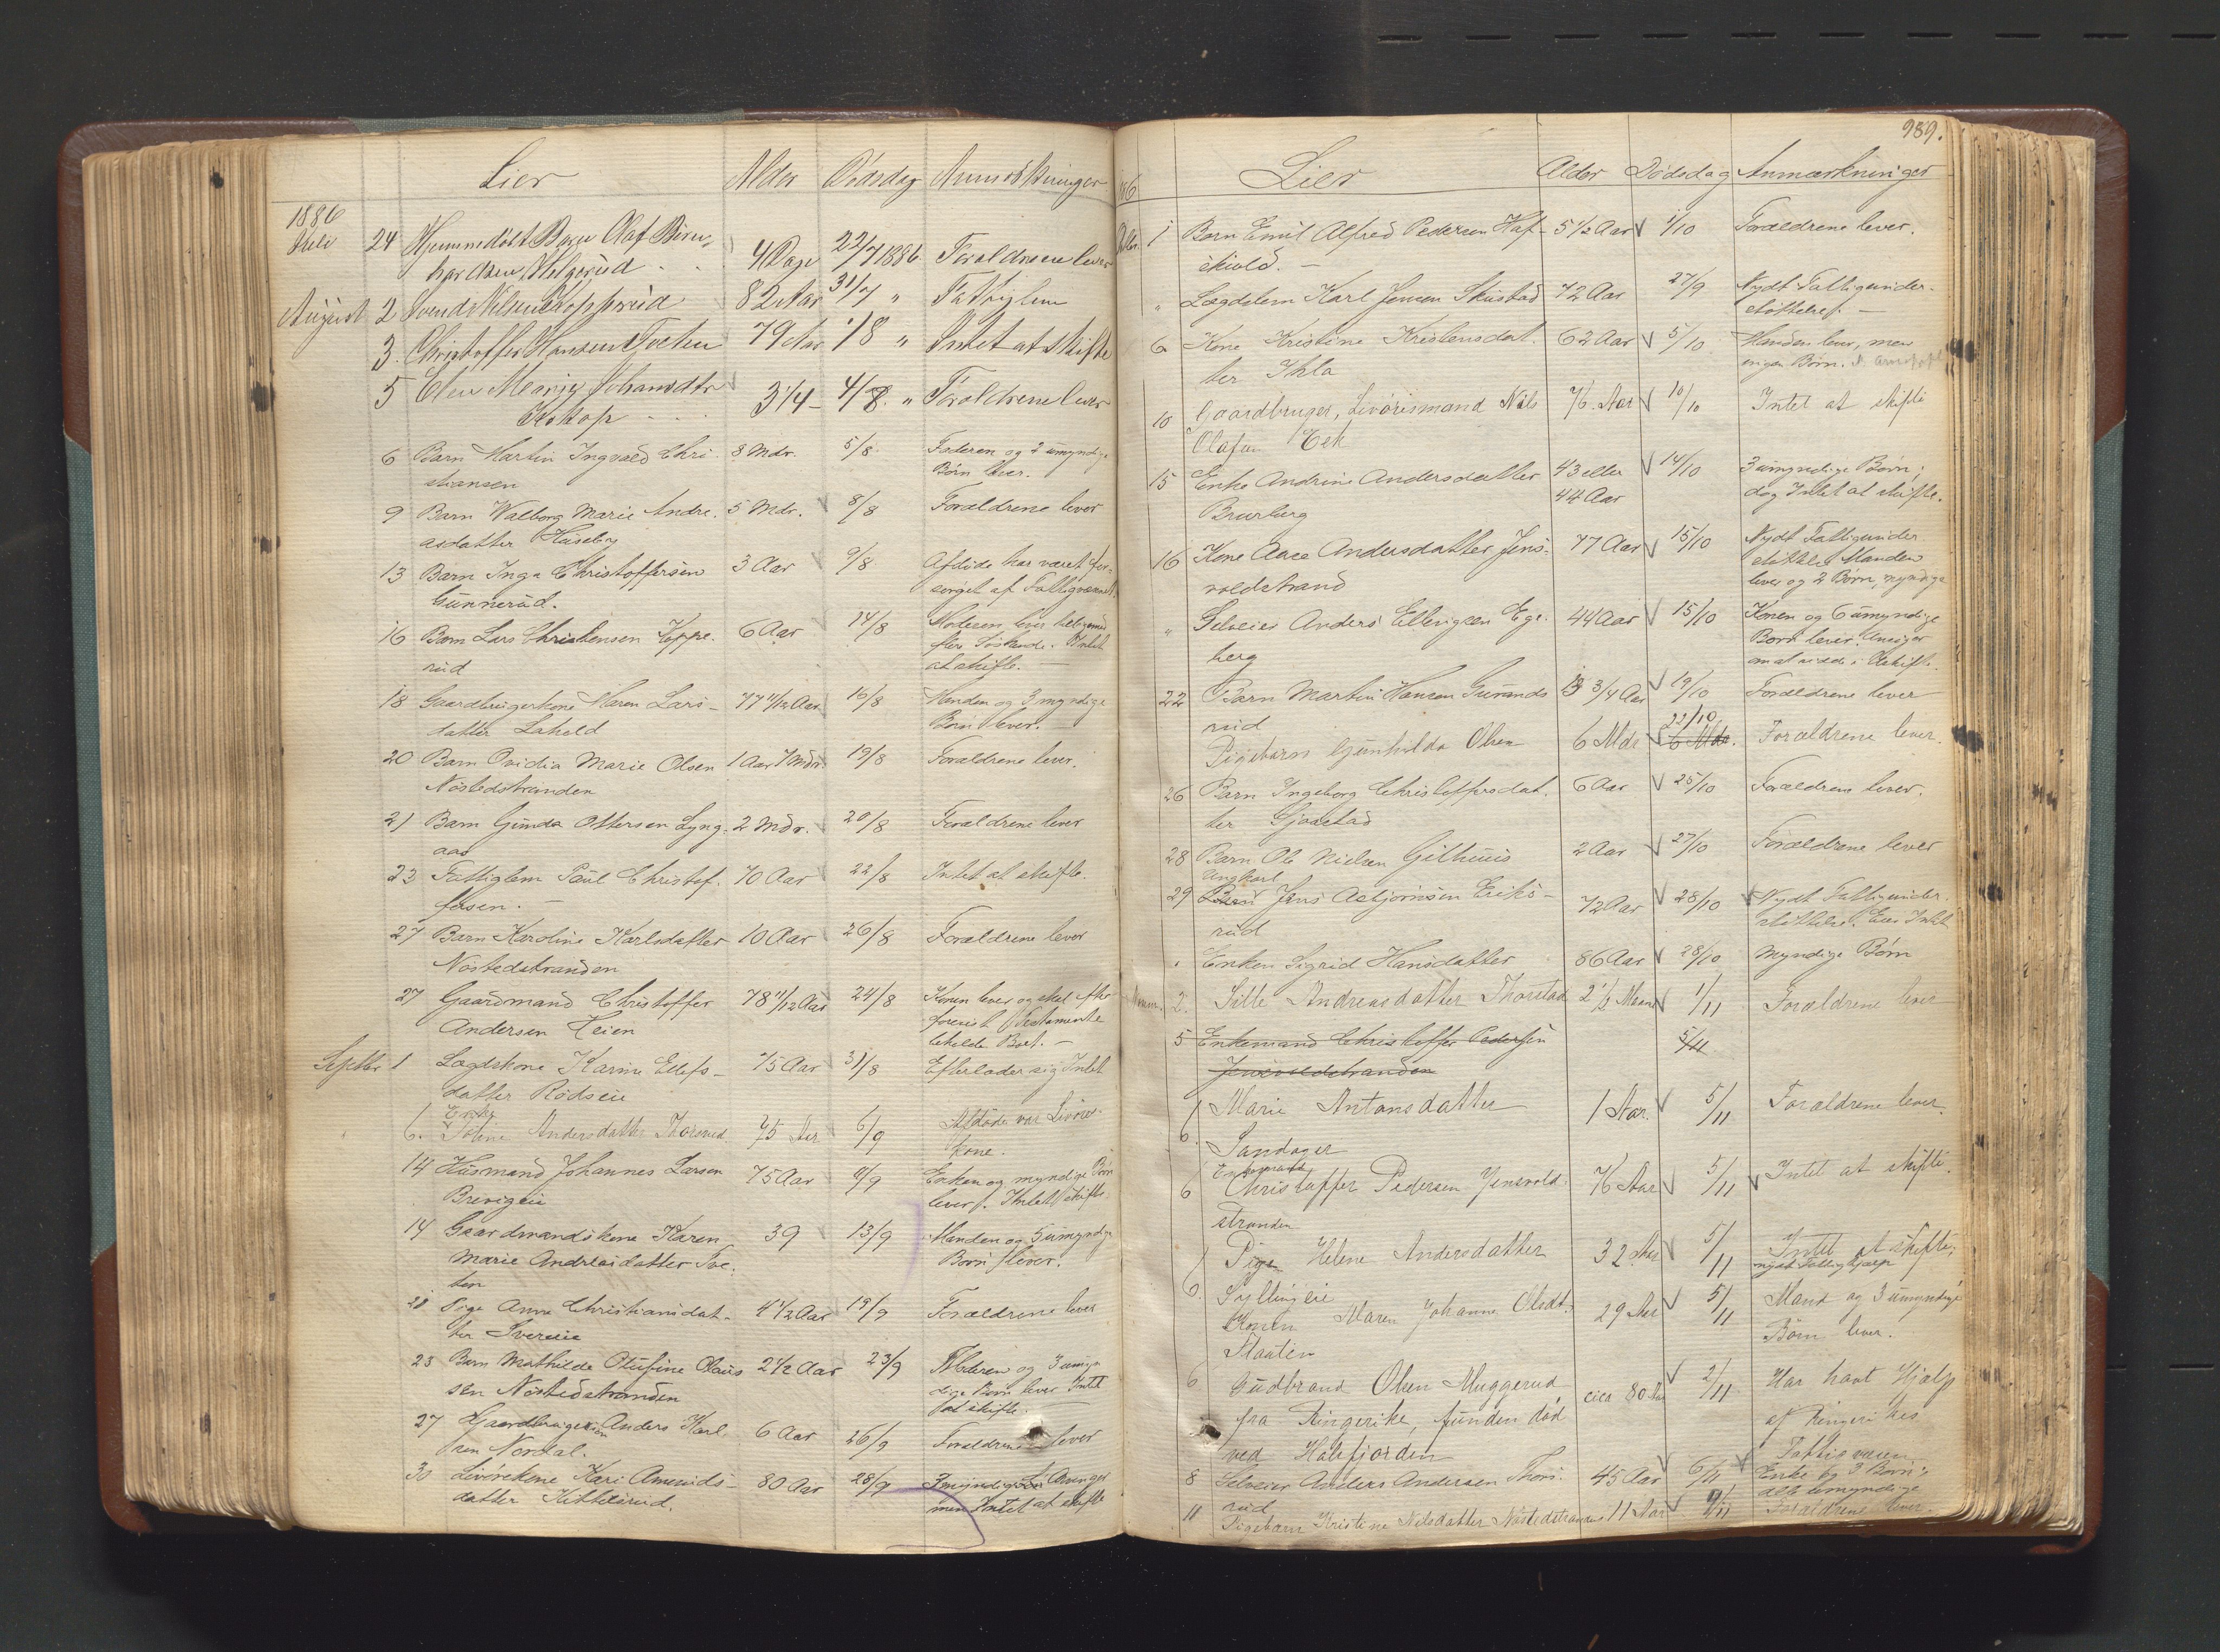 Lier Alder Dødsdag Anmærkninger
1886
Juli 24 Hjemmedøbt Barn Olaf
4 Dage 22/7 1886 Forældrene lever
August 2 Svend Nilsen Kopperud 82 Aar 31/7 " Fattiglem
3 Christoffer Hansen Tveten 79 Aar 1/8 " Intet at skifte
5 Elen Marie Johansdtr 3 1/4 4/8 " Forældrene lever
6 Barn Martin Ingvald Chri- 8 Mdr. 5/8 Faderen og 2 umyndige
stiansen Børn lever.
9 Barn Walborg Marie Andre- 5 Mdr. 8/8 Forældrene lever
asdatter Huseby
13 Barn Inga Christoffersen 3 Aar 9/8 Afdøde har været for-
Gunnerud. sørget af Fattigvæsenet.
16 Barn Lars Christensen Koppe- 6 Aar 14/8 Moderen lever
rud flere Søskende. Intet
at skifte. —
18 Gaardbrugerkone Maren Lars- 77 11/12 Aar 16/8 Manden og 3 myndige
datter Laheld Børn lever. —
20 Barn Ovidia Marie Olsen 1 Aar 7 Mdr. 19/8 Forældrene lever.
Nøstedstranden
21 Barn Gunda Ottersen Lyng- 2 Mdr. 20/8 Forældrene lever
aas
23 Fattiglem Paul Christof- 70 Aar 22/8 Intet at skifte.
fersen. —
27 Barn Karoline Karlsdatter 10 Aar 26/8 Forældrene lever
Nøstedstranden
27 Gaardmand Christoffer 78 11/12 Aar 24/8 Konen lever og skal efter
Andersen Heien forevist Testamente
beholde Boet. —
Septbr 1 Lægdskone Karine Ellefs- 75 Aar 31/8 Efterlader sig Intet
datter Rødseie
Enke
6. Andersdatter Thorsrud 75 Aar 6/9 Afdøde var Livøres-
kone.
14 Husmand Johannes Larsen 75 Aar 9/9 Enken og myndige Børn
Brevigeie lever. Intet at skifte
14 Gaardmandskone Karen 39 13/9 Manden og 5 umyndige
Marie Andreasdatter Tve- Børn lever.
ten
21 Pige Anne Christiansdat- 4 1/2 Aar 19/9 Forældrene lever
ter
23 Barn Mathilde Olufine Olaus- 2 1/2 Aar 23/9 Moderen og 3 umyn-
sen Nøstedstranden dige Børn lever Intet
at skifte. —
27 Anders Karl- 6 Aar 26/9 Forældrene lever
sen Nordal.
30 Livøreskone Kari Amunds- 80 Aar 28/9 3 myndige Arvinger
datter Kittelsrud. men Intet at skifte
989.
86 Lier Alder Dødsdag Anmærkninger
1 Barn Emil Alfred Pedersen Haf- 5 1/2 Aar 1/10 Forældrene lever.
skiold. —
" Lægdslem Karl Jensen Skustad 72 Aar 27/9 Nydt Fattigunder-
støttelse. —
6 Kone Kristine Kristensdat- 62 Aar 5/10 Manden lever, men
ter Ihla ingen Børn.
10 Gaardbruger, Livørismand Nils 76 Aar 10/10 Intet at skifte
Olafsen Eek
15 Enke Andrine Andersdatter 43 eller 14/10 3 umyndige Børn;
44 Aar dog Intet at skifte.
Brurberg
16 Kone Aase Andersdatter Jens- 77 Aar 15/10 Nydt Fattigunder-
voldstrand støttelse Manden
lever og 2 Børn, myndige
" Selveier Anders Ellingsen Ege- 44 Aar 15/10 Konen og 6 umyndige
berg Børn lever. Ansøger
om at sidde i Uskifte.
22 Barn Martin Hansen Gunnds 3 3/4 Aar 19/10 Forældrene lever
rud
22/10
Pigebarn Gunhilda Olsen 6 Mdr 6 Mdr. Forældrene lever.
26 Barn Ingeborg Christoffersdat- 6 Aar 25/10 Forældrene lever.
ter Gjøastad
28 Barn Ole Nielsen Gilhuus 2 Aar 27/10 Forældrene lever
Ungkarl
29 Barn Jens Asbjørnsen Eriks- 72 Aar 28/10 Nydt Fattigunder-
rud støttelse. Eier Intet
" Enken Sigrid Hansdatter 86 Aar 28/10 Myndige Børn
Novem. 2. Andreasdatter Thorstad 1/11 Forældrene lever
5 Enkemand Christoffer Pedersen 5/11
Jensvoldstranden
6. Marie Antonsdatter 1 Aar. 5/11 Forældrene lever.
Sandager
Enkemand
6 Christoffer Pedersen Jensvold- 76 Aar 5/11 Intet at skifte.
stranden
6. Pige Helene Andersdatter 32 Aar 5/11 Intet at skifte;
nydt Fattighjælp
Syllingeie
Konen Maren Johanne Olsdt. 29 Aar 5/11 Mand og 3 umyndige
Børn lever.
6 Gudbrand Olsen Muggerud cica 80 Aar 2/11 Har havt Hjælp
fra Ringerike, funden død af Ringerikes
ved Holsfjorden Fattigvæsen
8 Selveier Anders Andersen Thors- 45 Aar 6/11 Enke og 3 Børn;
rud alle umyndige
11 Pigebarn Kristine Nilsdatter Nøstedstranden 11 Aar 9/11 Forældrene lever.